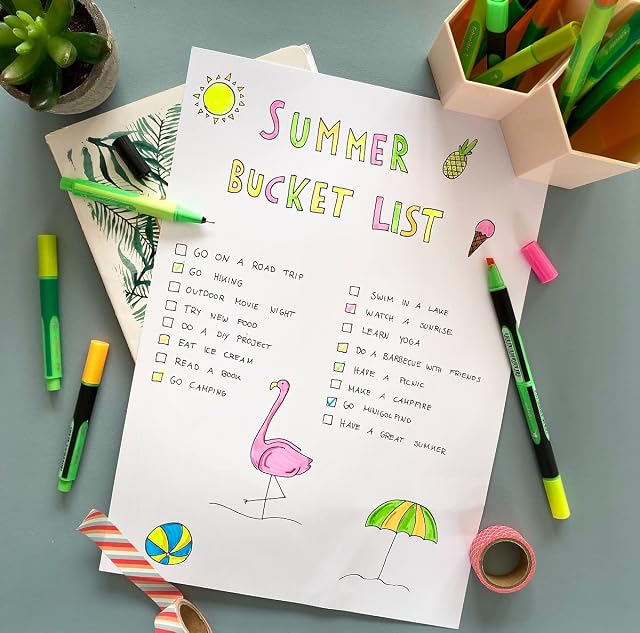 SUMMER
BUCKET LIST
GO ON A ROAD TRIP
GO HIKING
OUTDOOR MOVIE NIGHT
TRY NEW FOOD
DO A DIY PROJECT
EAT ICE CREAM
READ A BOOK
GO CAMPING
SWIM IN A LAKE
WATCH A SUNRISE
LEARN YOGA
DO A BARBECUE WITH FRIENDS
HAVE A PICNIC
MAKE A CAMPFIRE
GO MINIGOLFING
HAVE A GREAT SUMMER